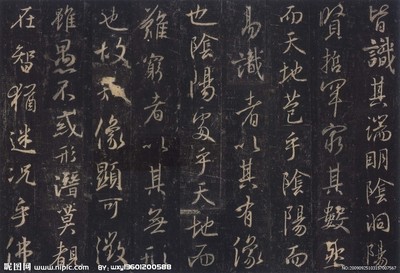 皆識其端明陰洞陽
賢哲罕窮其數然
而天地苞乎陰陽而
易識者以其有像
也陰陽處乎天地而
難窮者以其無形
也故知像顯可徵
雖愚不惑形潛莫覩
在智猶迷況乎佛
昵图网
www.nipic.com